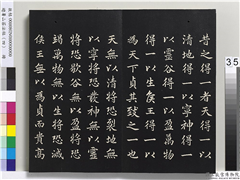 昔之得一者天得一以
清地得一以寧神得一
以靈谷得一以盈萬物
得一以生侯王得一以
為天下貞其致之一也
天無以清將恐裂地無
以寧將恐發神無以靈
將恐歇谷無以盈將恐
竭萬物無以生將恐滅
侯王無以為貞而貴高
35